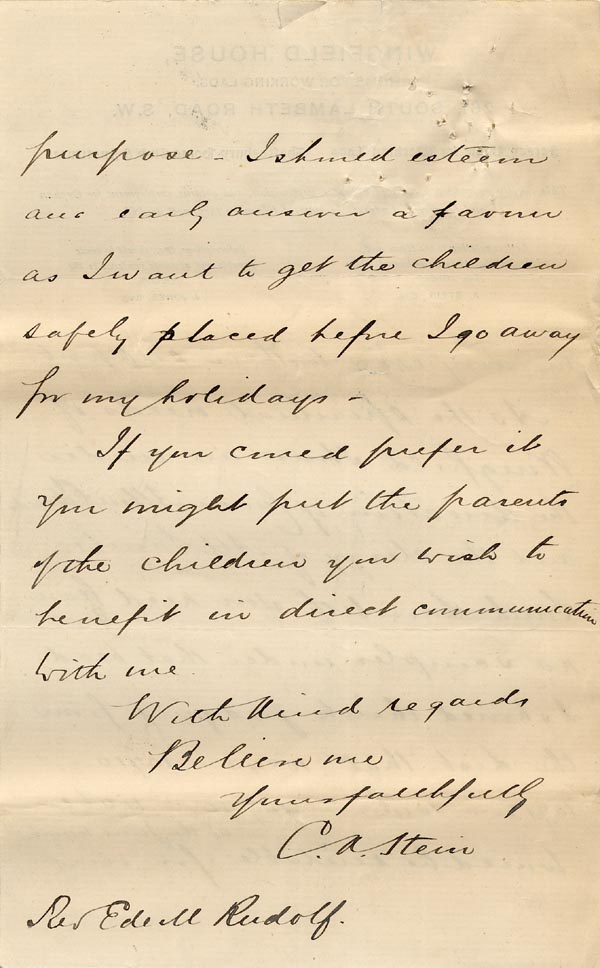 purpose - I should esteem
and early answer a favour
as I want to get the children
safely placed before I go away
for my holidays -
If you could prefer it
you might put the parents
of the children you wish to
benefit in direct communication
with me
With kind regards
Believe me
Yours faithfully
C. A. Stein
Rev Ede M Rudolf.
WINGFIELD HOUSE,
HOME FOR WORKING LADS,
SOUTH LAMBETH ROAD, S.W.